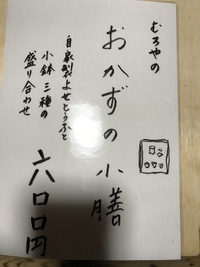 むろやの
おかずの小膳
自家製よせとうふと
小鉢三種の
盛り合わせ
六〇〇円